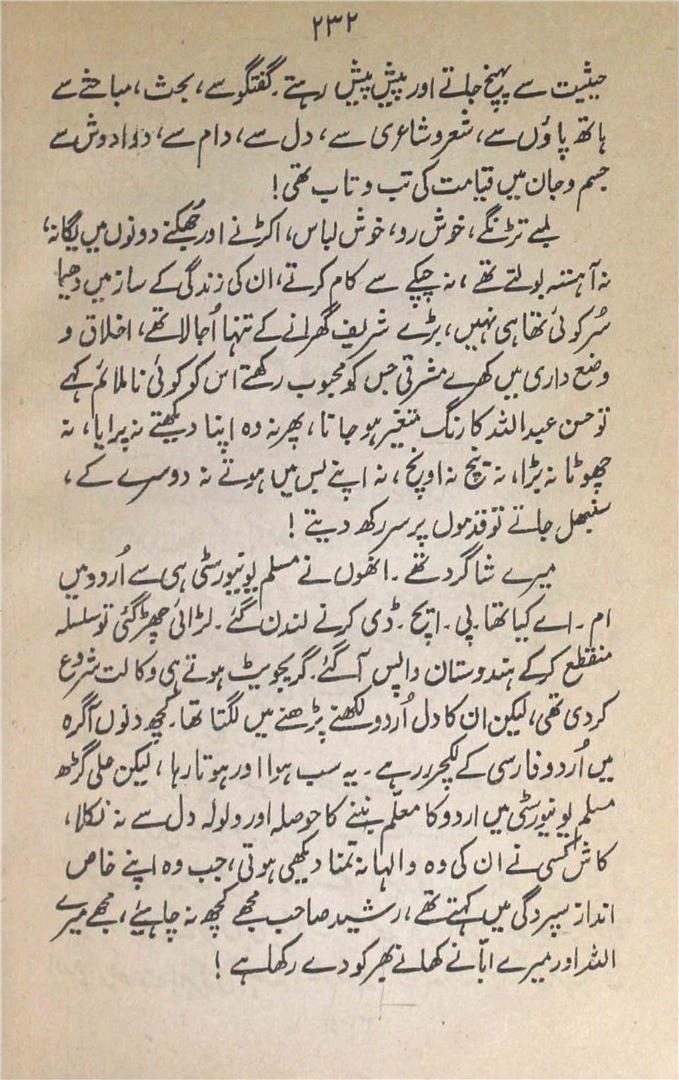 ۲۳۲
حیثیت سے پہنچ جاتے اور پیش پیش رہتے۔ گفتگو سے، بحث، مباحثے سے
ہاتھ پاؤں سے، شعر و شاعری سے، دل سے، دام سے، دوا دوش سے
جسم و جان میں قیامت کی تب و تاب تھی!
لمبے تڑنگے، خوش رو، خوش لباس، اکڑنے اور جھکنے دونوں میں یگانہ،
نہ آہستہ بولتے تھے، نہ چپکے سے کام کرتے، ان کی زندگی کے ساز میں دھیما
سُر کوئی تھا ہی نہیں، بڑے شریف گھرانے کے تنہا اُجالا تھے، اخلاق و
وضع داری میں کھرے مشرقی جس کو محبوب رکھتے اس کو کوئی نا ملائم کہے
تو حسن عبداللہ کا رنگ متغیر ہو جاتا، پھر نہ وہ اپنا دیکھتے نہ پرایا، نہ
چھوٹا نہ بڑا، نہ نیچ نہ اونچ، نہ اپنے بس میں ہوتے نہ دوسرے کے،
سنبھل جاتے تو قدموں پر سر رکھ دیتے!
میرے شاگرد تھے۔ انھوں نے مسلم یونیورسٹی ہی سے اُردو میں
ام۔ اے کیا تھا۔ پی۔ ایچ۔ ڈی کرنے لندن گئے۔ لڑائی چھڑ گئی تو سلسلہ
منقطع کر کے ہندوستان واپس آ گئے۔ گریجویٹ ہوتے ہی وکالت شروع
کر دی تھی، لیکن ان کا دل اُردو لکھنے پڑھنے میں لگتا تھا۔ کچھ دنوں آگرہ
میں اُردو فارسی کے لکچرر رہے۔ یہ سب ہوا اور ہوتا رہا، لیکن علی گڑھ
مسلم یونیورسٹی میں اردو کا معلّم بننے کا حوصلہ اور ولولہ دل سے نہ نکلا،
کاش کسی نے ان کی وہ والہانہ تمنا دیکھی ہوتی، جب وہ اپنے خاص
انداز سپردگی میں کہتے تھے، رشید صاحب مجھے کچھ نہ چاہیئے، مجھے میرے
اللہ اور میرے ابّا نے کھانے بھر کو دے رکھا ہے!